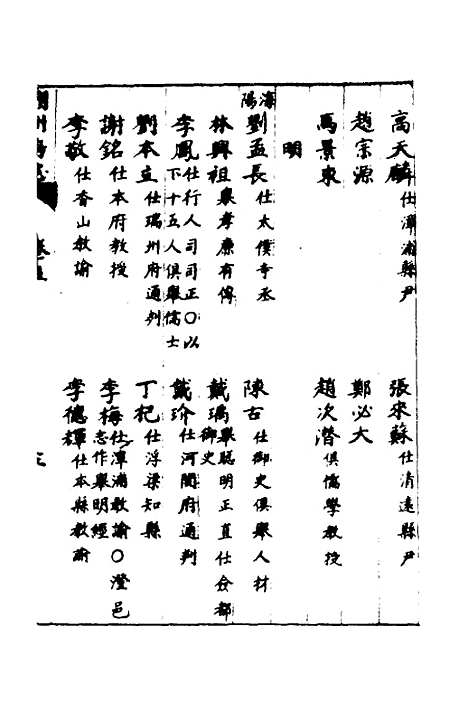 高天麟仕漳浦縣尹 張來蘇仕清遠縣尹
趙宗源 鄭必大
馬景東 趙次潛俱儒學教授
明
海陽 劉孟長仕太僕寺丞 陳古仕御史俱舉人材
林興祖舉孝廉有傳 戴瑀舉聰明正直仕僉都御史
李鳳仕行人司司正〇以下十五人俱舉儒士 戴玠仕河間府通判
劉本立仕瑞州府通判 丁杞仕浮梁知縣
謝銘仕本府教授 李梅仕漳浦教諭〇澄邑志作舉明經
李敬仕香山教諭 李德輝仕本縣教諭
卷五